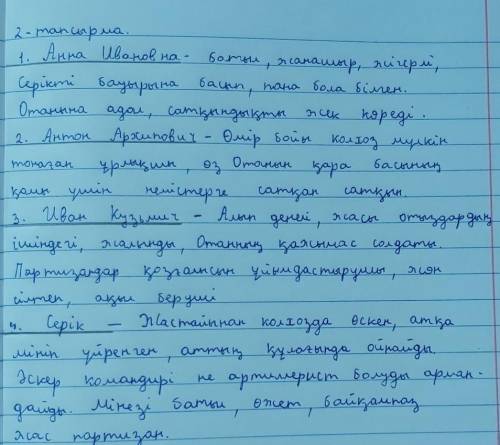 2-тапсырма.
1. Анна Ивановна - батыл, жанашыр, жігерлі,
Серікті бауырына басып, пана бола білген.
Отанына адал, сатқындықты жек көреді.
2. Антон Архипович - Өмір бойы колхоз мүлкін
тонаған ұрлықшы, өз Отанын қара басының
қамы үшін немістерге сатқан сатқын.
3. Иван Кузьмич - Алып денелі, жасы отыздардың
ішіндегі, жалынды, Отанның қайсымас солдаты.
Партизандар қозғалысын ұйымдастырушы, жөн
сілтеп, ақыл беруші
4. Серік - Жастайынан колхозда өскен, атқа
мініп үйренген, аттың құлағында ойнайды.
Әскер командирі не артиллерист болуды арман-
дайды. Мінезі батыл, өжет, байқампаз
жас партизан.